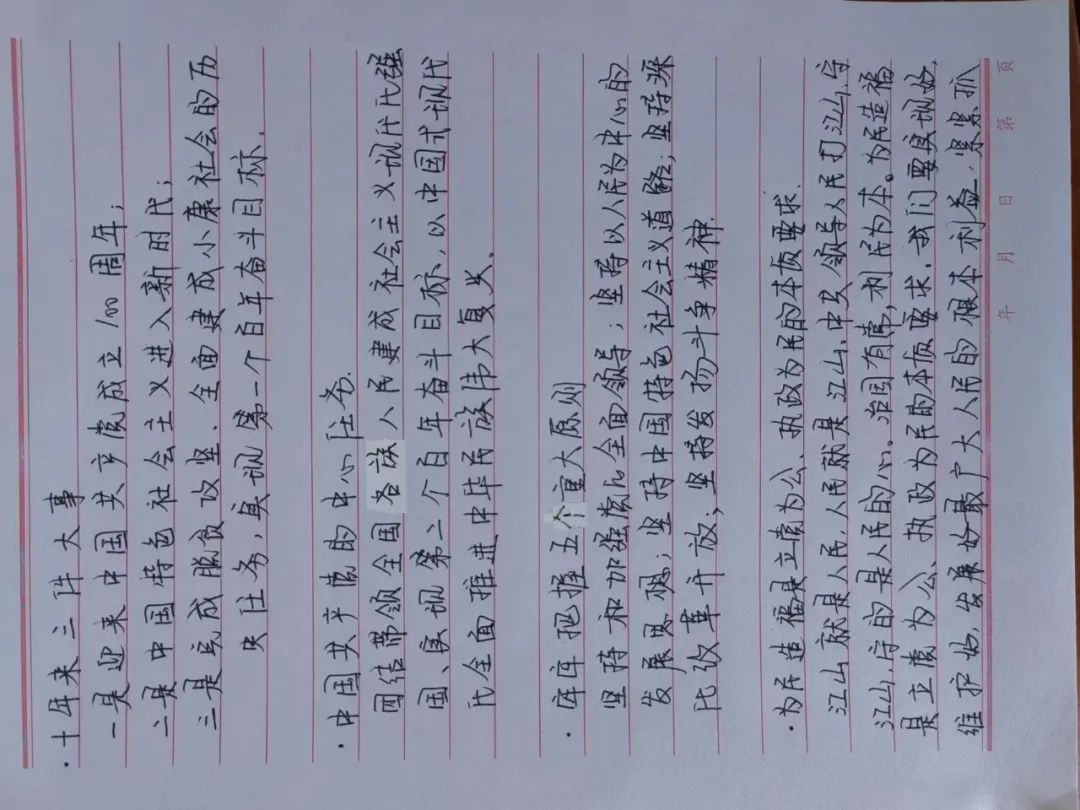 ·十年来三件大事
一是迎来中国共产党成立100周年;
二是中国特色社会主义进入新时代;
三是完成脱贫攻坚、全面建成小康社会的历
史任务,实现第一个百年奋斗目标.
·中国共产党的中心任务.
团结带领全国各族人民建成社会主义现代化强
国、实现第二个百年奋斗目标,以中国式现代
化全面推进中华民族伟大复兴。
·牢牢把握五个重大原则
坚持和加强党的全面领导;坚持以人民为中心的
发展思想;坚持中国特色社会主义道路;坚持深
化改革开放;坚持发扬斗争精神.
·为民造福是立党为公、执政为民的本质要求.
江山就是人民,人民就是江山.中共领导人民打江山,守
江山,守的是人民的心.治国有常,利民为本。为民造福
是立党为公、执政为民的本质要求.我们要实现好,
维护好,发展好最广大人民的根本利益,紧紧抓
年 月 日 第 页